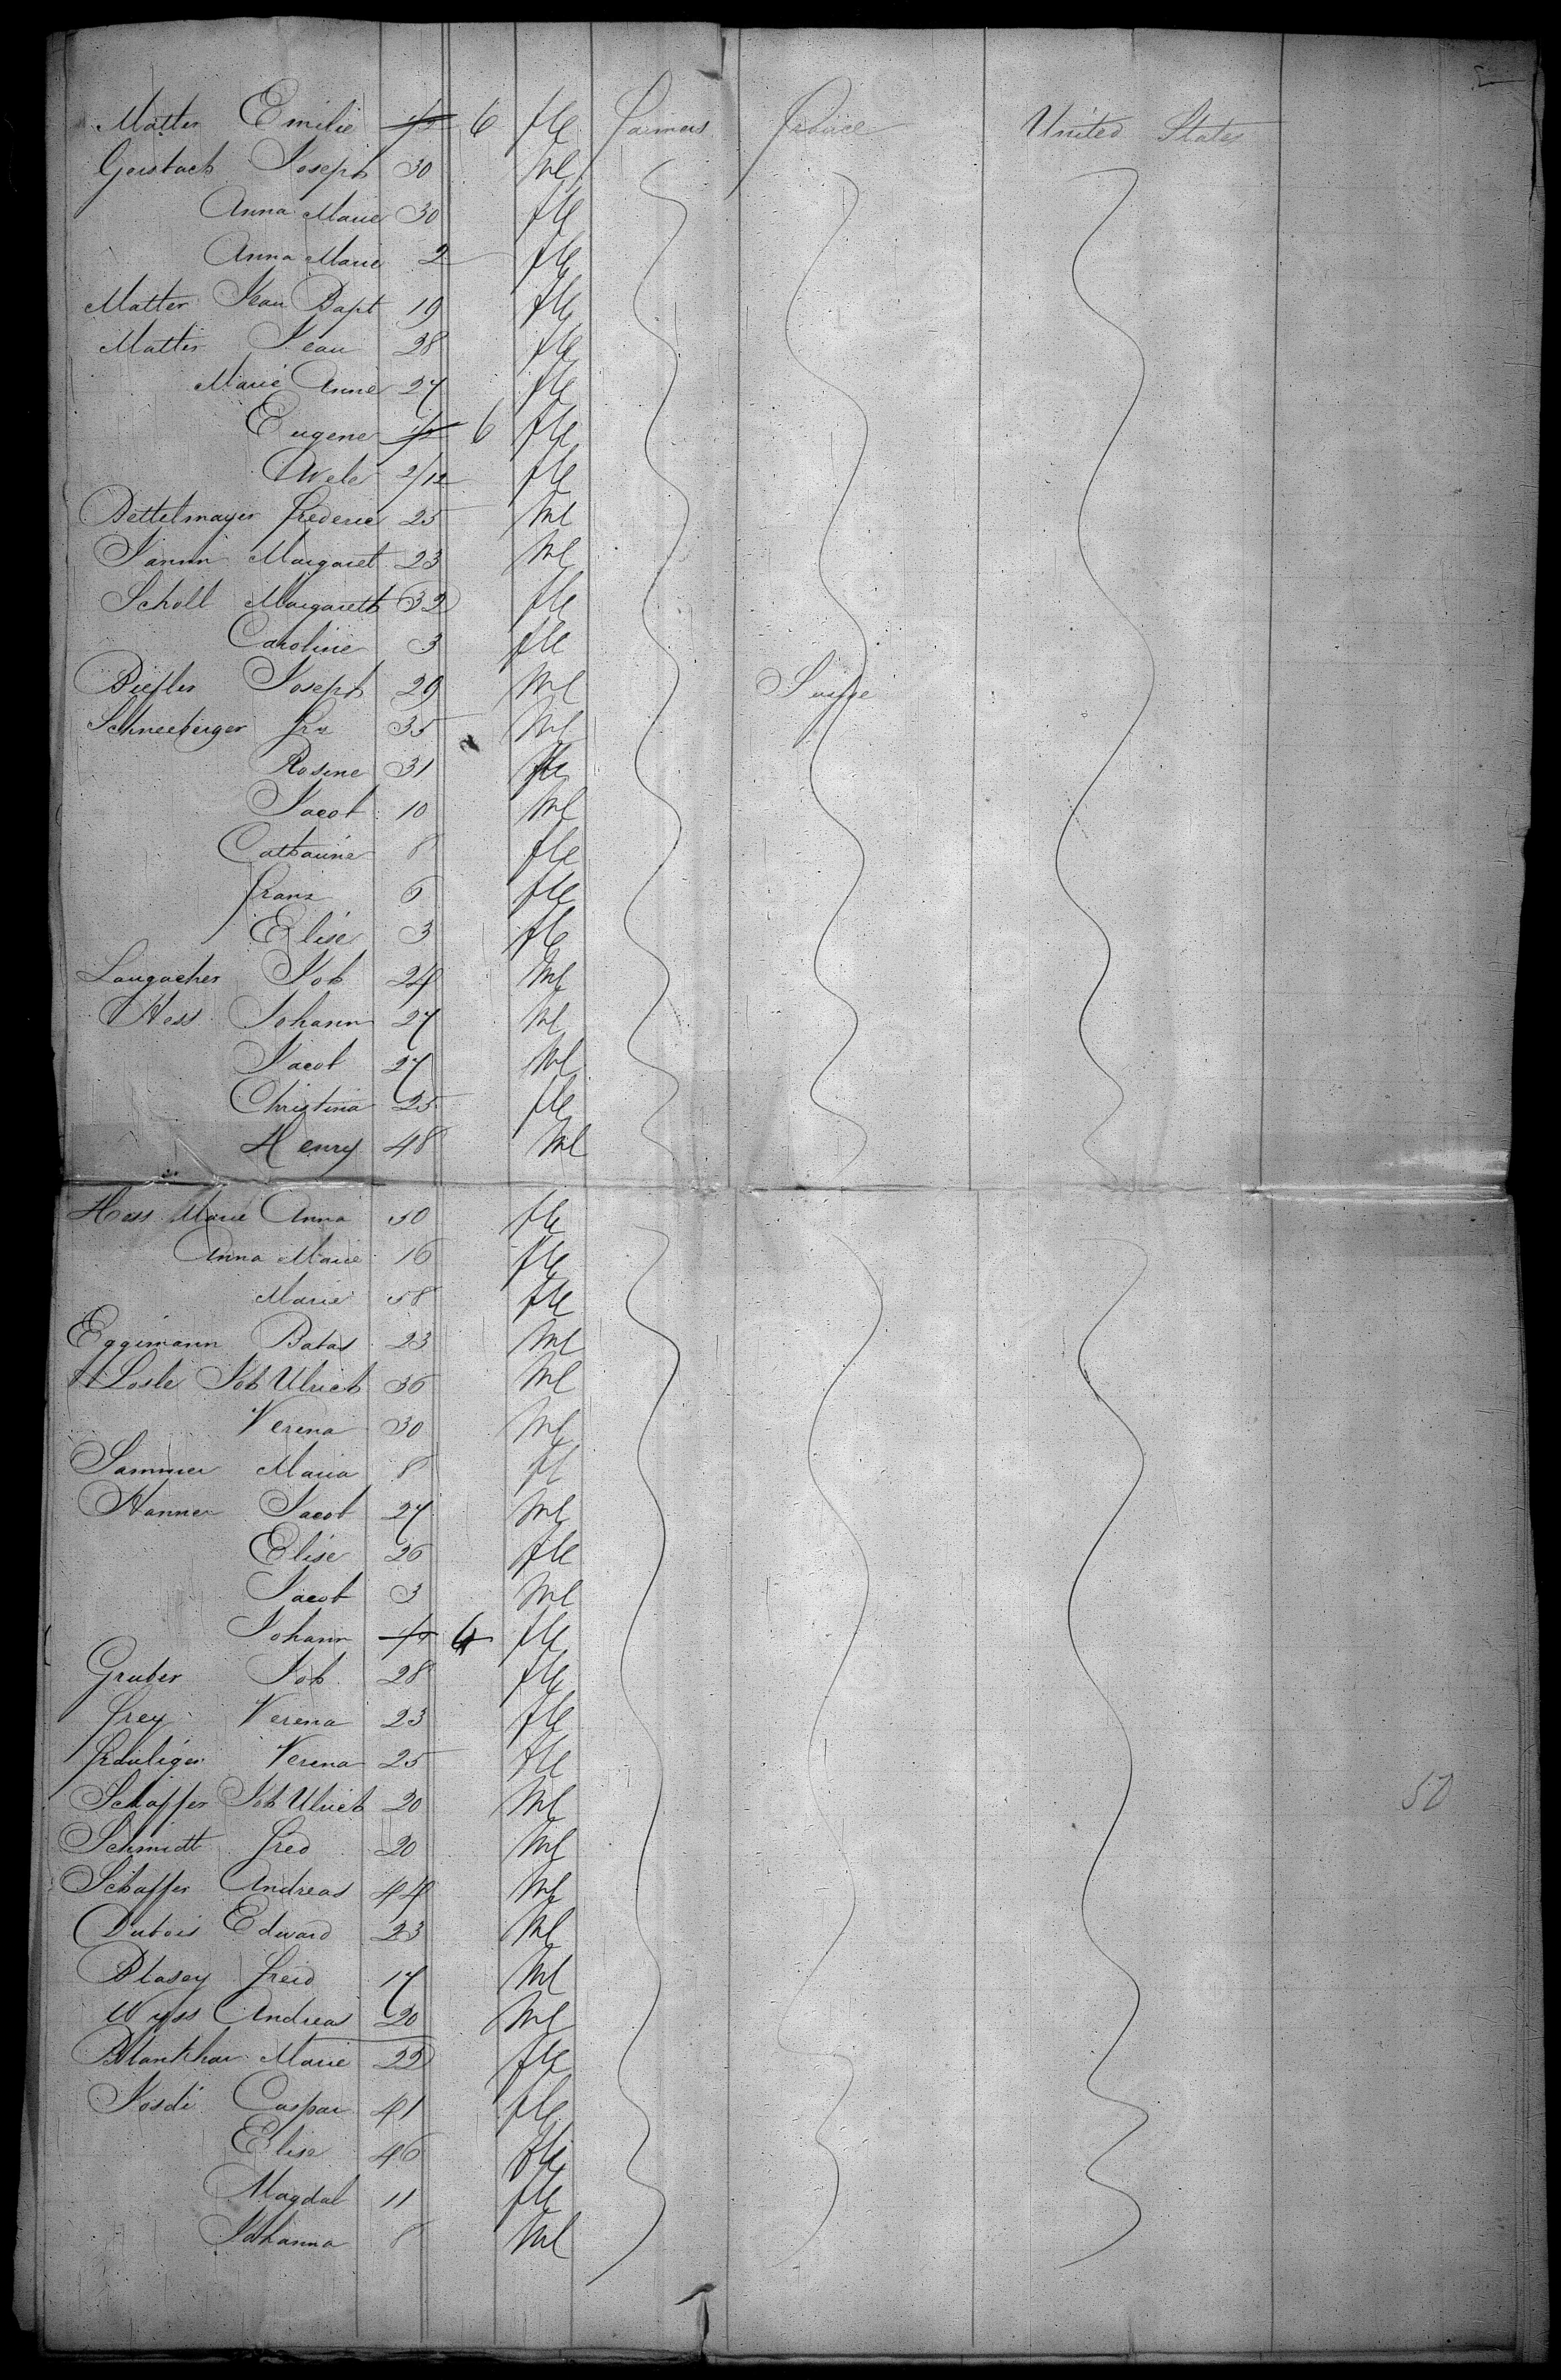 Matter Emilie 6 fle Farmers France United States
Gerstach Joseph 30 Ml
Anna Marie 30 fle
Anna Marie 2 fle
Matter Jean Bapt 19 fle
Matter Jean 28 fle
Marie Anne 27 fle
Eugene 6 fle
2/12 fle
Dettelmayer Frederic 25 Ml
Margaret 23 Ml
Scholl Margareth 32 fle
Caroline 3 fle
Joseph 29 Ml Suisse
Schneeberger Frz 35 Ml
Rosine 31 fle
Jacob 10 Ml
Catharine 8 fle
Franz 6 fle
Elise 3 fle
Langacher Joh 24 Ml
Hess Johann 27 Ml
Jacob 27 Ml
Christina 25 fle
Henry 48 Ml
Hess Marie Anna 50 fle
Anna Marie 16 fle
Marie 58 fle
Eggimann 23 Ml
Losle Joh Ulrich 36 Ml
Verena 30 Ml
Sammer Maria 8 fl
Hanner Jacob 27 Ml
Elise 26 fle
Jacob 3 Ml
Johann fle
Gruber Joh 28 fle
Frey Verena 23 fle
Verena 25 fle
Schaffer Joh Ulrich 20 Ml 50
Schmidt Fred 20 Ml
Schaffer Andreas 44 Ml
Dubois Edward 23 Ml
Blasey Fred 17 Ml
Wyss Andreas 20 Ml
Marie 22 fle
Josdi Caspar 41 fle
Elise 46 fle
Magdal 11 fle
Johanna 8 Ml